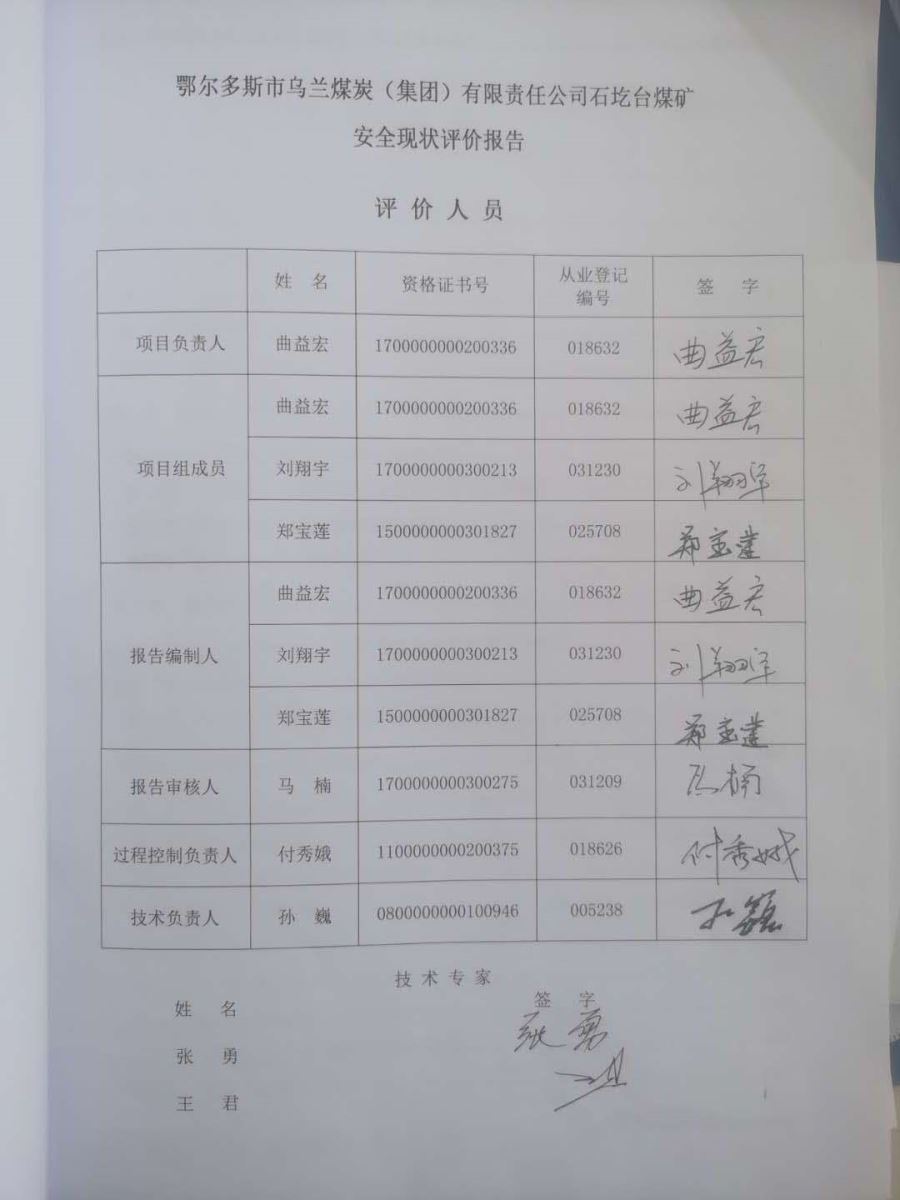 鄂尔多斯市乌兰煤炭（集团）有限责任公司石圪台煤矿
安全现状评价报告
评价人员
姓 名 资格证书号 从业登记编号 签 字
项目负责人 曲益宏 1700000000200336 018632 曲益宏
项目组成员 曲益宏 1700000000200336 018632 曲益宏
刘翔宇 1700000000300213 031230 刘翔宇
郑宝莲 1500000000301827 025708 郑宝莲
报告编制人 曲益宏 1700000000200336 018632 曲益宏
刘翔宇 1700000000300213 031230 刘翔宇
郑宝莲 1500000000301827 025708 郑宝莲
报告审核人 马 楠 1700000000300275 031209 马楠
过程控制负责人 付秀娥 1100000000200375 018626 付秀娥
技术负责人 孙 巍 0800000000100946 005238 孙巍
技术专家
姓 名 签 字
张 勇 张勇
王 君